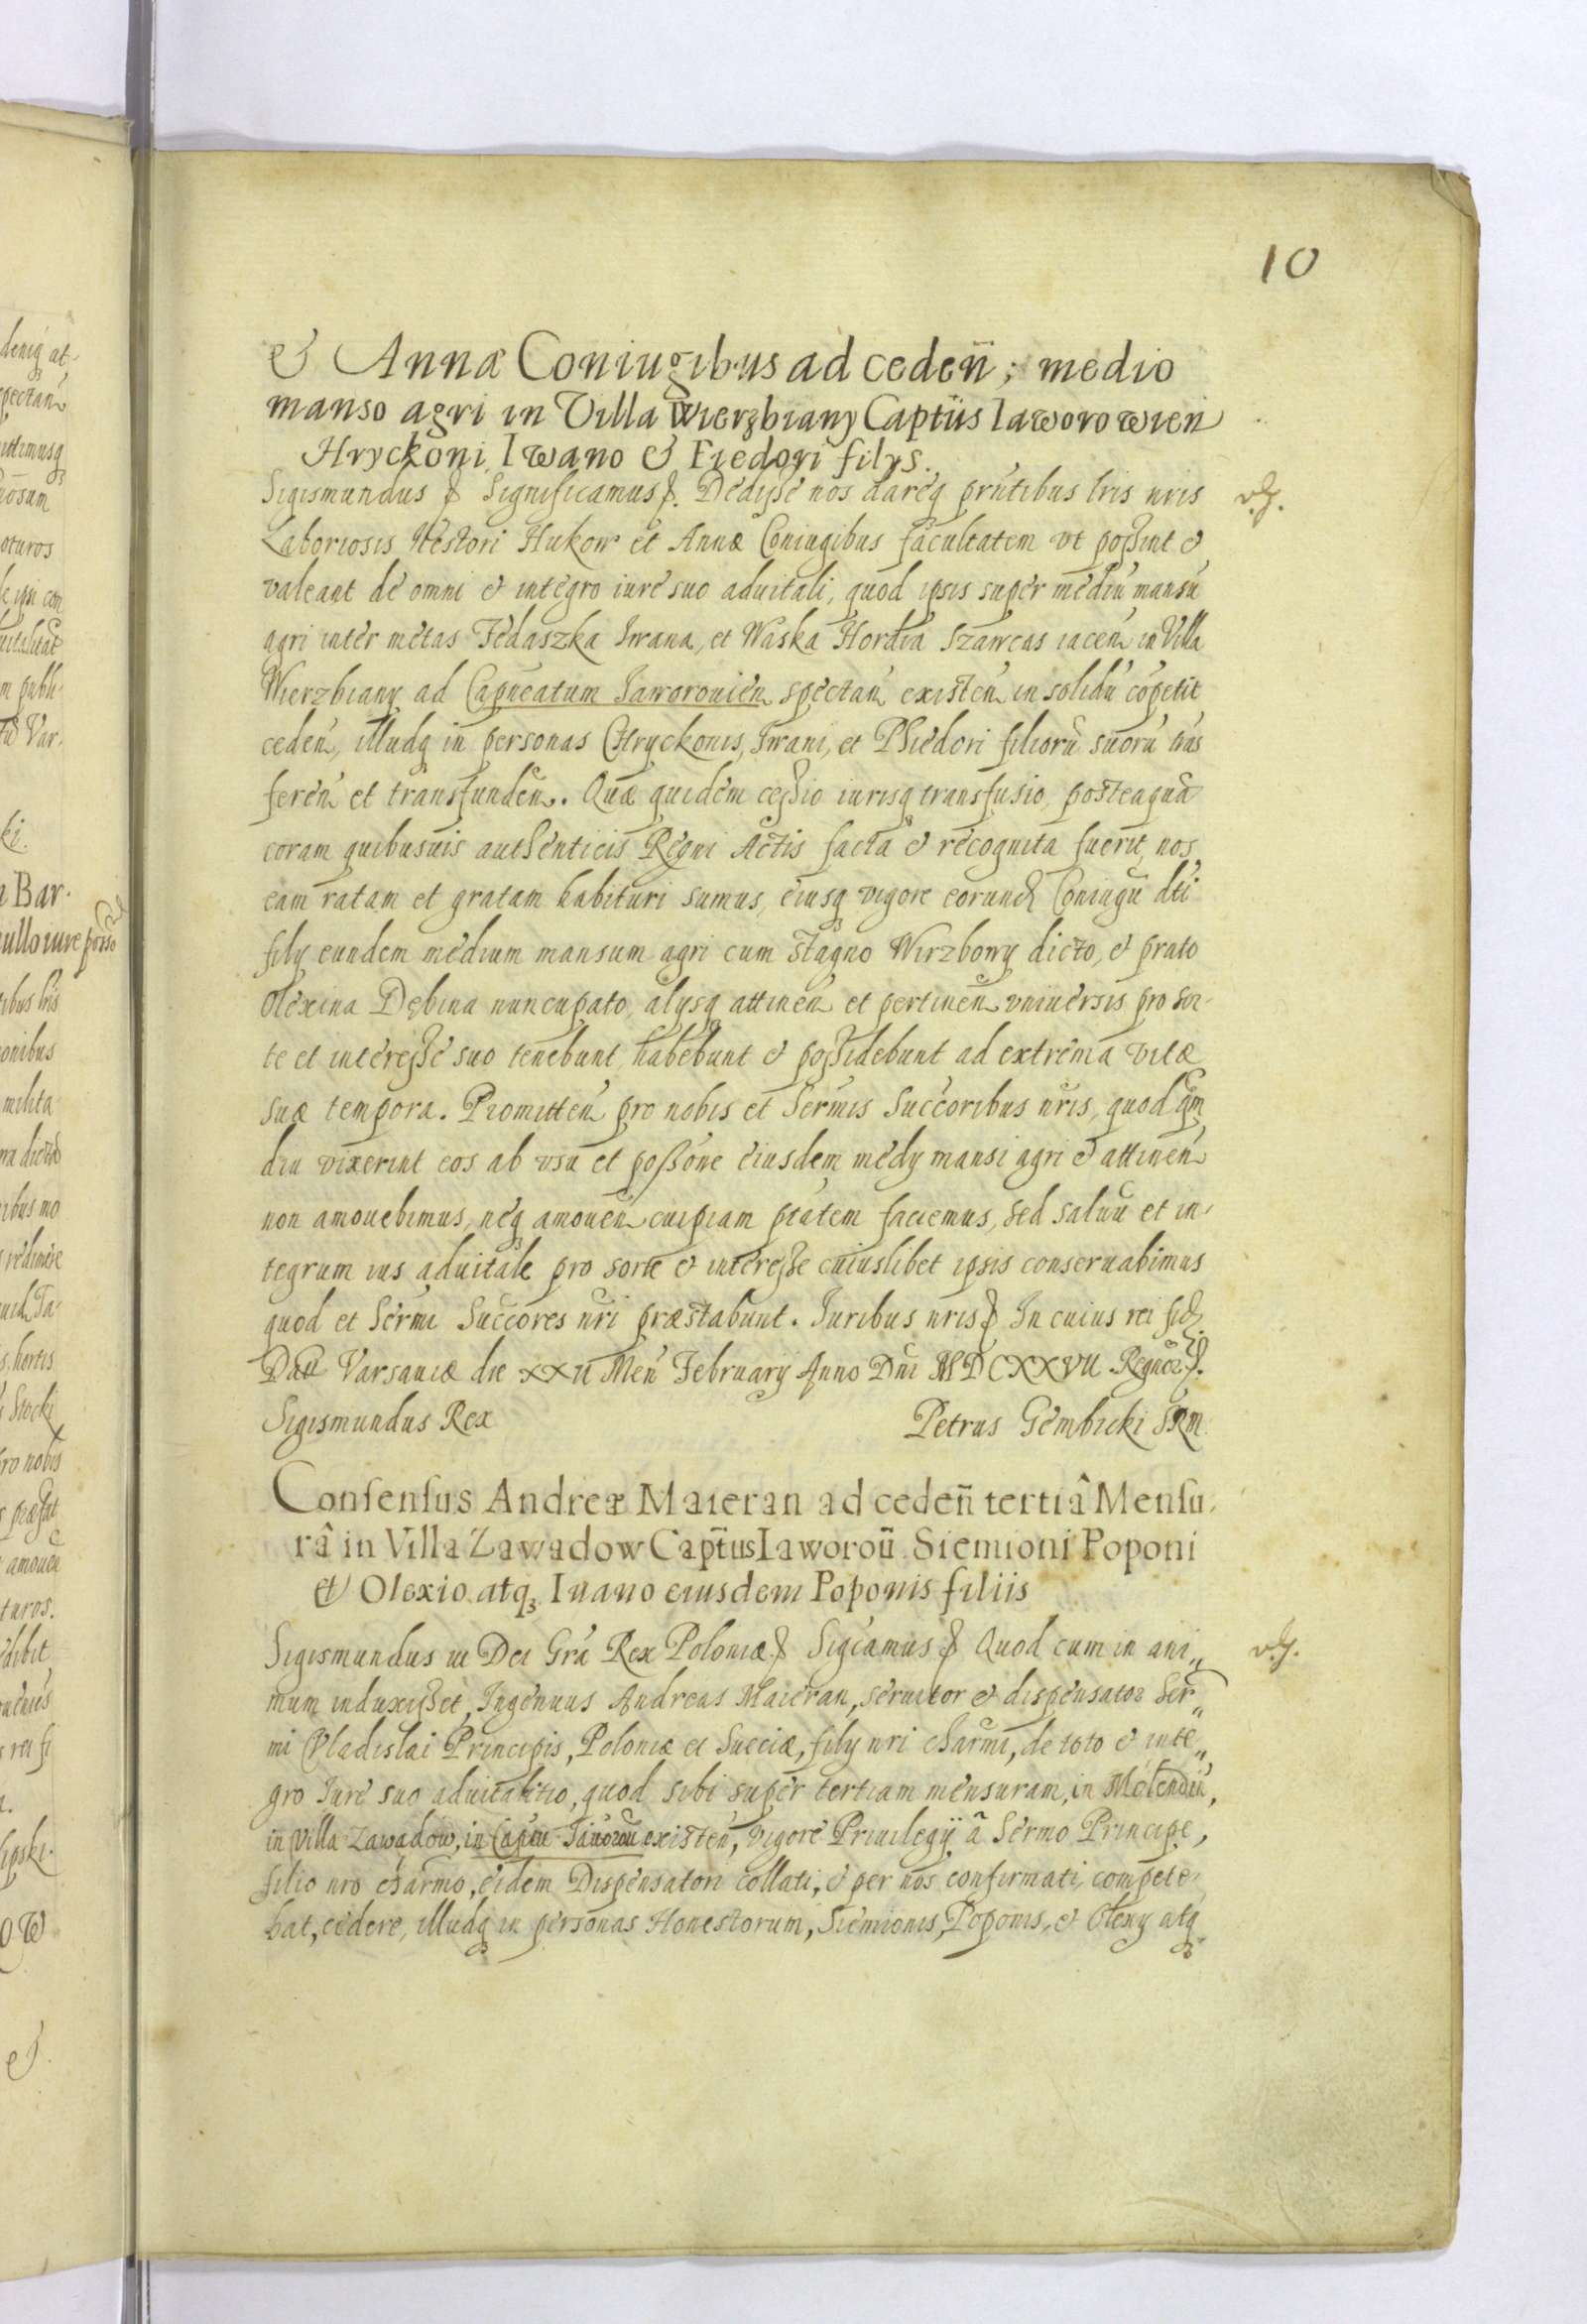 10
& Annæ Coniugibus ad cedeñ; medio
manso agri in Villa Wierzbiany Captûs Iaworowien
Hryckoni Iwano & Fiedori filys.
Sigismundus Significamus. Dedisse nos dareq pñtibus lris nris
Laboriosis Nestori Hukow et Annæ Coniugibus facultatem vt possint &
valeant de omni & integro iure suo aduitali, quod ipsis super mediũ mansũ
agri inter metas Fedaszka Iwana, et Waska Hordia Szawcas iacen in Villa
Wierzbiany ad Capneatum Iaworouien spectañ existeñ in solidũ cõpetit
cedeñ, illudq in personas Hryckonis, Iwani, et Phiedori filiorũ suorũ trãs
fereñ et transfundeñ. Quæ quidem cessio iurisq transfusio, posteaquã
coram quibusuis authenticis Regni Actis facta & recognita fuerit, nos
eam ratam et gratam habituri sumus, eiusq vigore eorund Coniugũ dti
fily eundem medium mansum agri cum stagno Wirzbowy dicto, & prato
Olexina Dębina nuncupato, alysq attineñ et pertineñ vniuersis pro sor-
te et interesse suo tenebunt, habebunt & possidebunt ad extrema vitæ
suæ tempora. Promitteñ pro nobis et Sermis Succoribus nris, quod qm
diu vixerint eos ab vsu et possone eiusdem medy mansi agri & attineñ
non amouebimus, neq amoueñ cuipiam ptatem faciemus, sed saluũ et in-
tegrum ius aduitale pro sorte & interesse cuiuslibet ipsis conseruabimus
quod et Sermi Succores nri præstabunt. Iuribus nris In cuius rei fid
Dat Varsauiæ die XXII Men February Anno Dni MDCXXVII Regnor
Sigismundus Rex Petrus Gembicki SRM.
Consensus Andreæ Maieran ad cedeñ tertiâ Mensu-
râ in Villa Zawadow Captus Iaworoũ Siemioni Poponi
et Olexio atq Iuano eiusdem Poponis filiis
Sigismundus III Dei Gra Rex Poloniæ Sigcamus Quod cum in ani„
mum induxisset, Ingenuus Andreas Maieran, seruitor & dispensator Ser„
mi Vladislai Principis, Poloniæ et Sueciæ, fily nri charmi, de toto & inte„
gro Iure suo aduitalitio, quod sibi super tertiam mensuram, in Molendiñ,
in Villa Zawadow, in Captu Iauorou existeñ, vigore Priuilegÿ â Sermo Principe,
filio nro charmo, eidem Dispensatori collati, & per nos confirmati, compete-
bat, cedere, illudq in personas Honestorum, Siemionis, Poponis, & Olexy atq